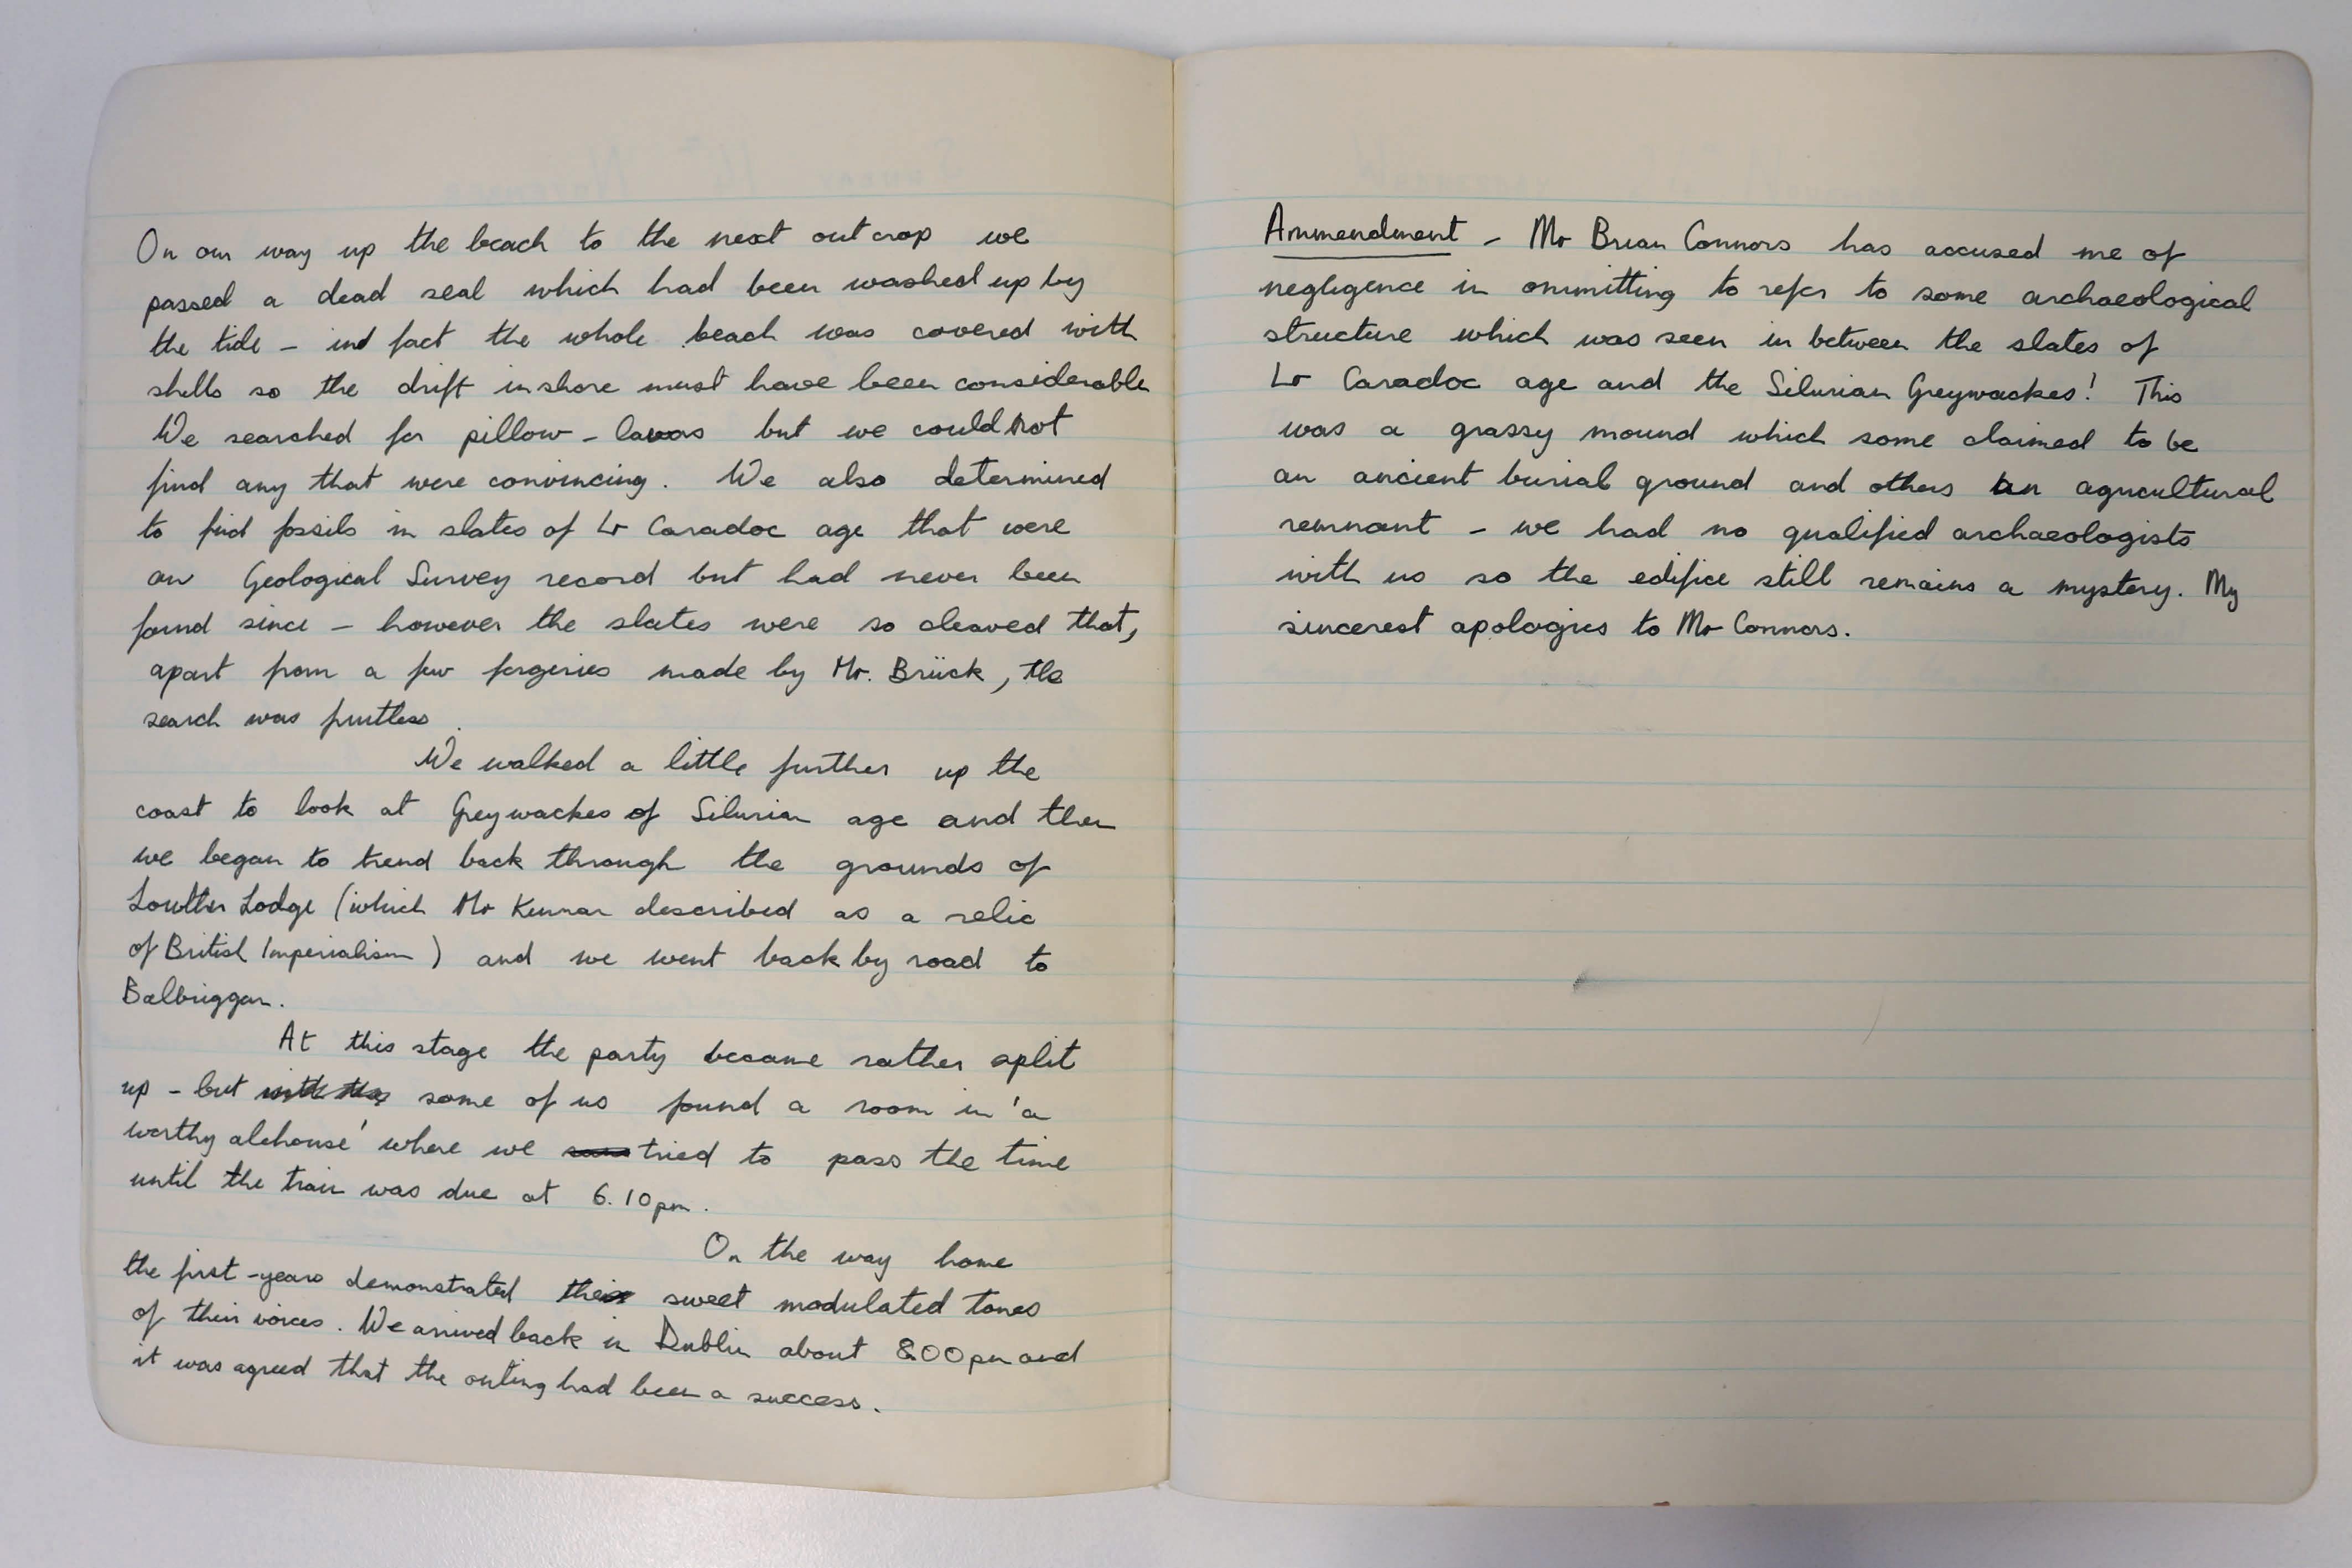 On our way up the beach to the next outcrop we
passed a dead seal which had been washed up by
the tide - in fact the whole beach was covered with
shells so the drift inshore must have been considerable
We searched for pillow-lavas but we could not
find any that were convincing. We also determined
to find fossils in slates of Lr Caradoc age that were
on Geological Survey record but had never been
found since - however the slates were so cleaved that,
apart from a few forgeries made by Mr. Brück, the
search was fruitless.
We walked a little further up the
coast to look at Greywackes of Silurian age and then
we began to trend back through the grounds of
Lowther Lodge (which Mr Kennan described as a relic
of British Imperialism) and we went back by road to
Balbriggan.
At this stage the party became rather split
up - but with the some of us found a room in 'a
worthy alehouse' where we tried to pass the time
until the train was due at 6.10pm.
On the way home
the first-years demonstrated the sweet modulated tones
of their voices. We arrived back in Dublin about 8.00pm and
it was agreed that the outing had been a success.
Ammendment - Mr Brian Connors has accused me of
negligence in ommitting to refer to some archaeological
structure which was seen in between the slates of
Lr Caradoc age and the Silurian Greywackes! This
was a grassy mound which some claimed to be
an ancient burial ground and others an agricultural
remnant - we had no qualified archaeologists
with us so the edifice still remains a mystery. My
sincerest apologies to Mr Connors.